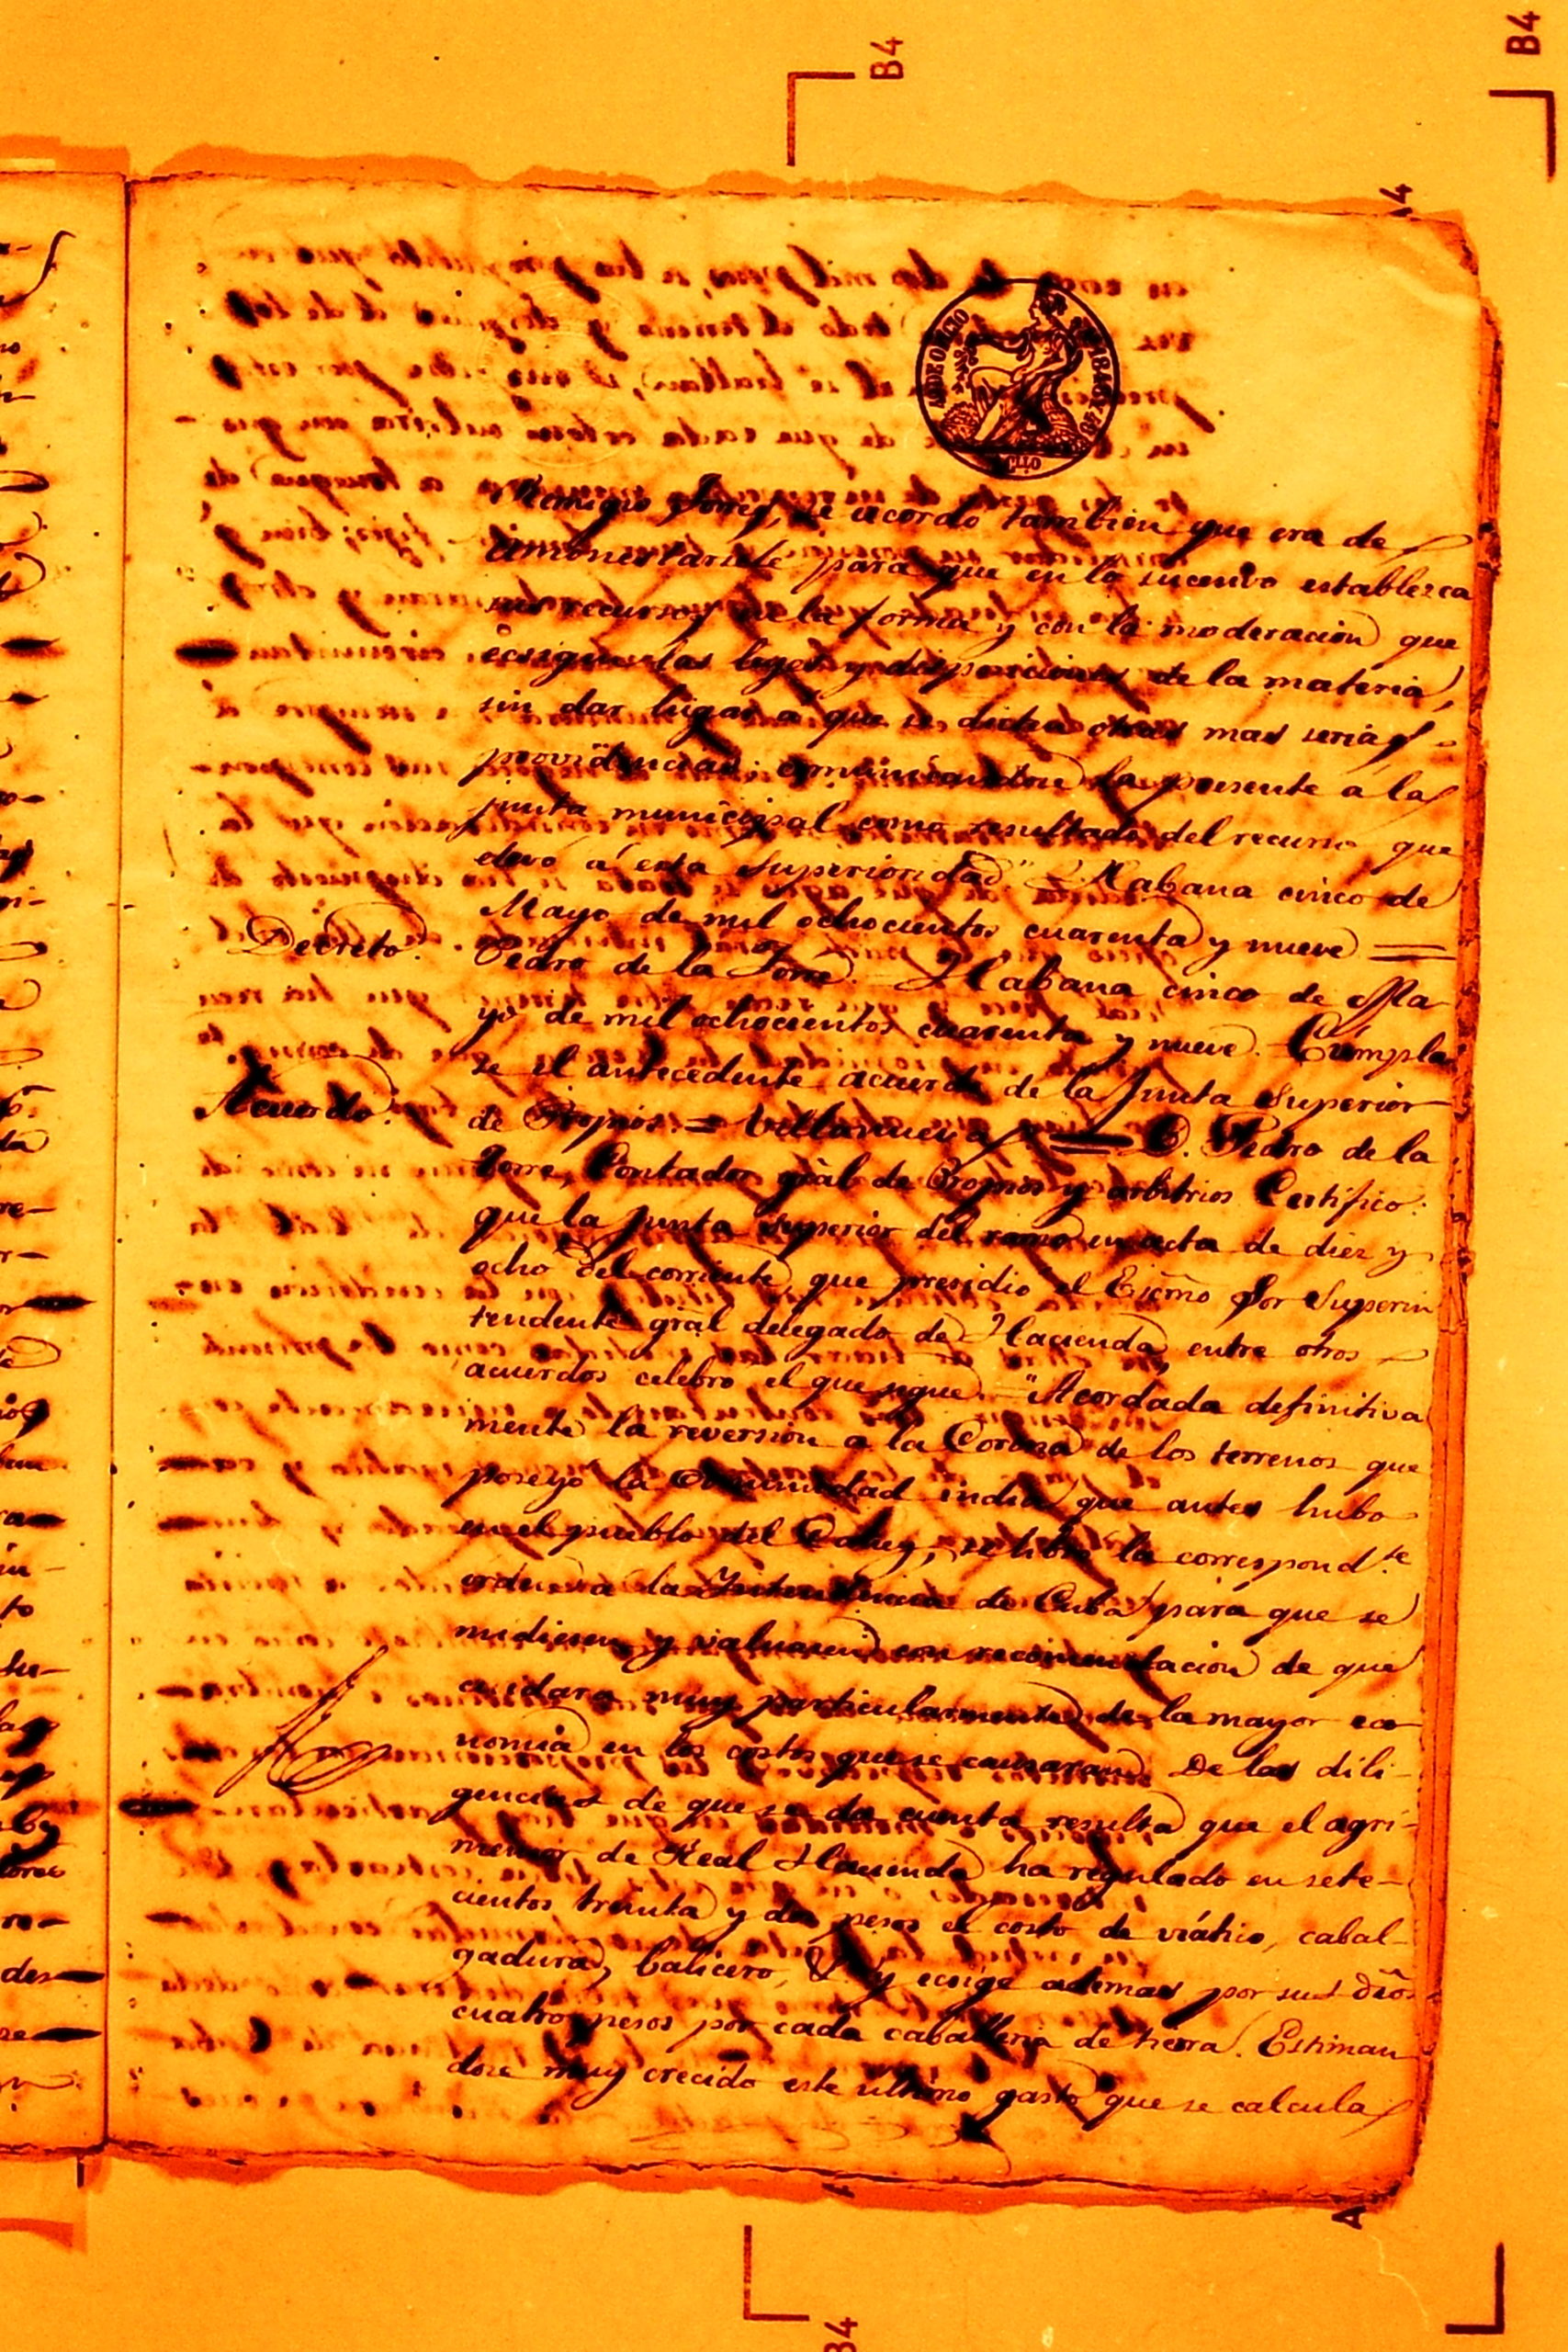 B4
B4
A4
AS DE OFICIO
Remigio Torres, se acordó tambien que era de
amonestarsele para que en lo sucesivo establezca
sus recursos en la forma y con la moderacion que
ecsigen las leyes y disposiciones de la materia,
sin dar lugar á que se dicten otras mas serias
providencias; comunicandose la presente á la
junta municipal como resultado del recurso que
elevó á esta Superioridad" Habana cinco de
Mayo de mil ochocientos cuarenta y nueve =
Decreto. Pedro de la Torre. = Habana cinco de Ma-
yo de mil ochocientos cuarenta y nueve. Cúmpla
se el antecedente acuerdo de la Junta Superior
Acuerdo. de Propios. = Villanueva = D. Pedro de la
Torre, Contador gral de Propios y arbitrios Certifico:
que la Junta Superior del ramo en acta de diez y
ocho del corriente, que presidio el Ecsmo Sor Superin
tendente gral delegado de Hacienda entre otros
acuerdos celebró el que sigue. = "Acordada definitiva
mente la reversion a la Corona de los terrenos que
poseyó la Comunidad india que antes hubo
en el pueblo del Caney, se libró la correspond.te
orden á la Intendencia de Cuba para que se
midiesen y valuasen con recomendacion de que
cuidara muy particularmente de la mayor eco
nomia en los costos que se causaran. De las dili-
gencias de que se da cuenta resulta que el agri-
mensor de Real Hacienda ha regulado en sete-
cientos treinta y dos pesos el costo de viático, cabal-
gadura, balicero, & y ecsige ademas por sus dros
cuatro pesos por cada caballeria de tierra. Estiman
dose muy crecido este ultimo gasto que se calcula
B4
A